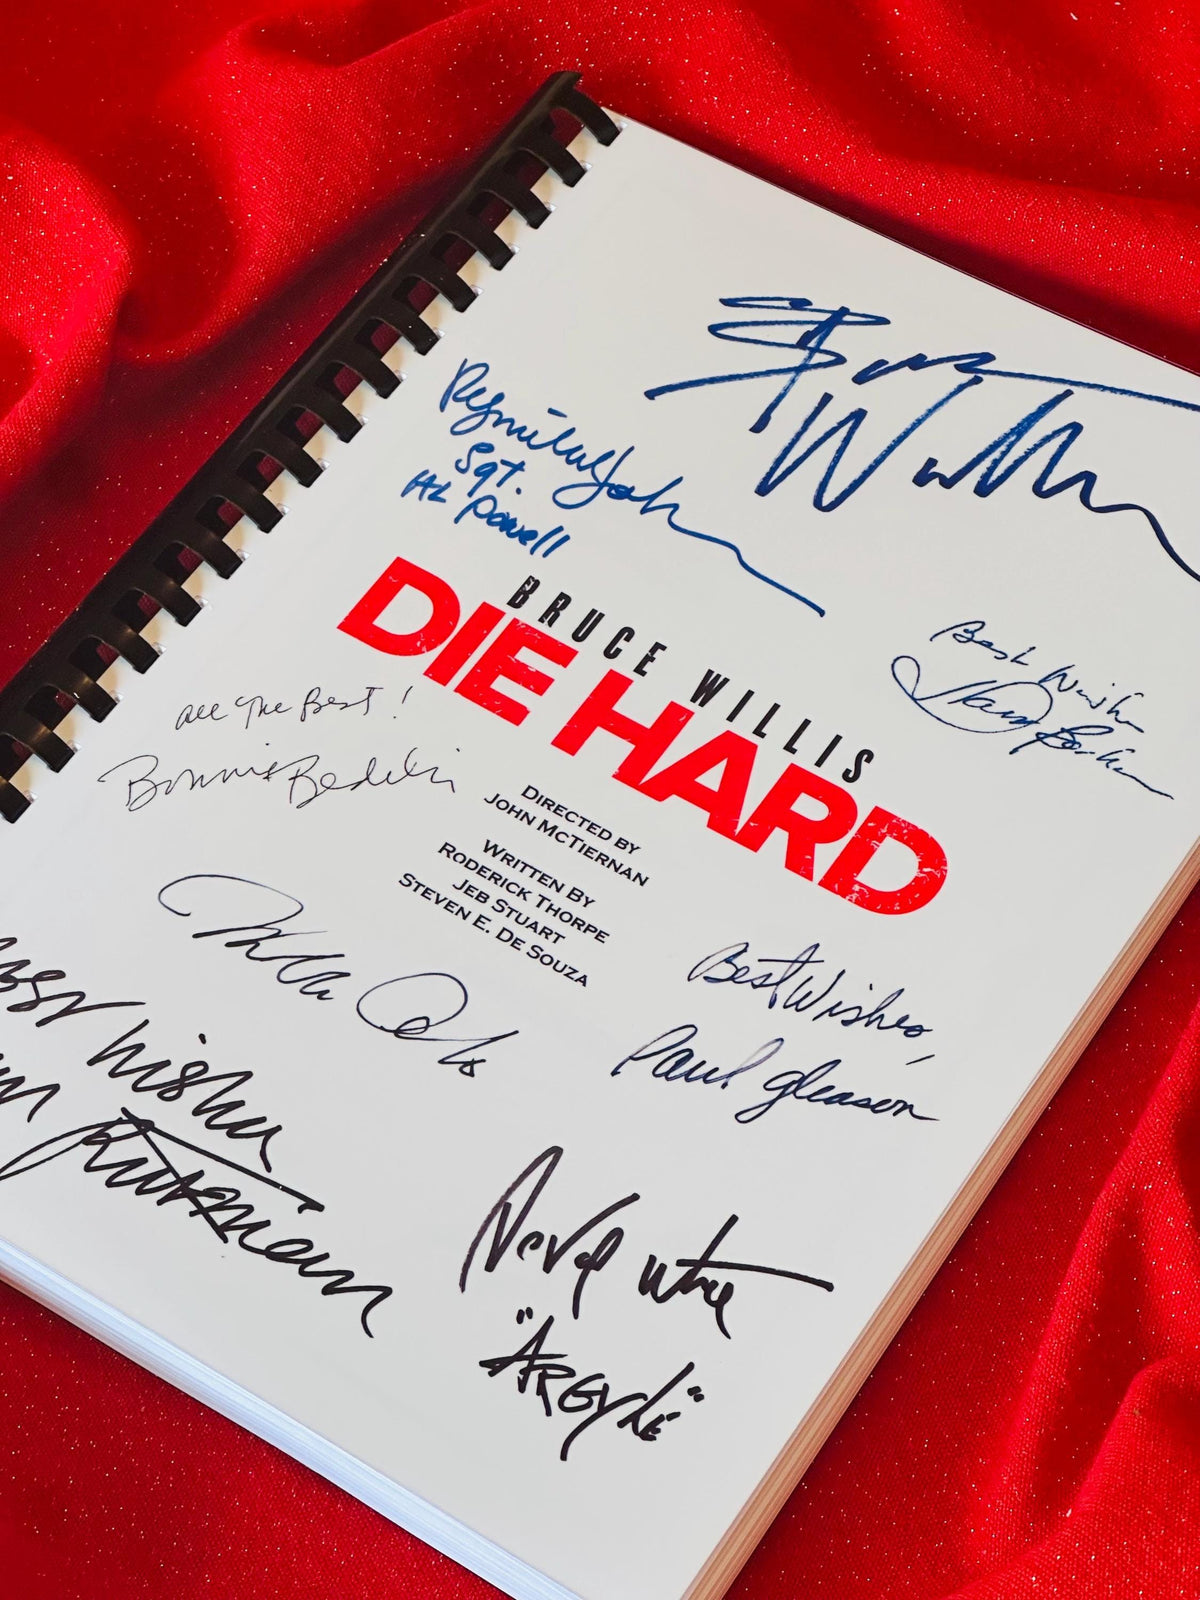 Bruce Willis
Reginald VelJohn
Sgt.
AL Powell
BRUCE WILLIS
DIE HARD
Best Wishes
All The Best!
Bonnie Bedelia
DIRECTED BY
JOHN MCTIERNAN
WRITTEN BY
RODERICK THORPE
JEB STUART
STEVEN E. DE SOUZA
Best Wishes,
Paul Gleason
Wishes
"ARGYLE"